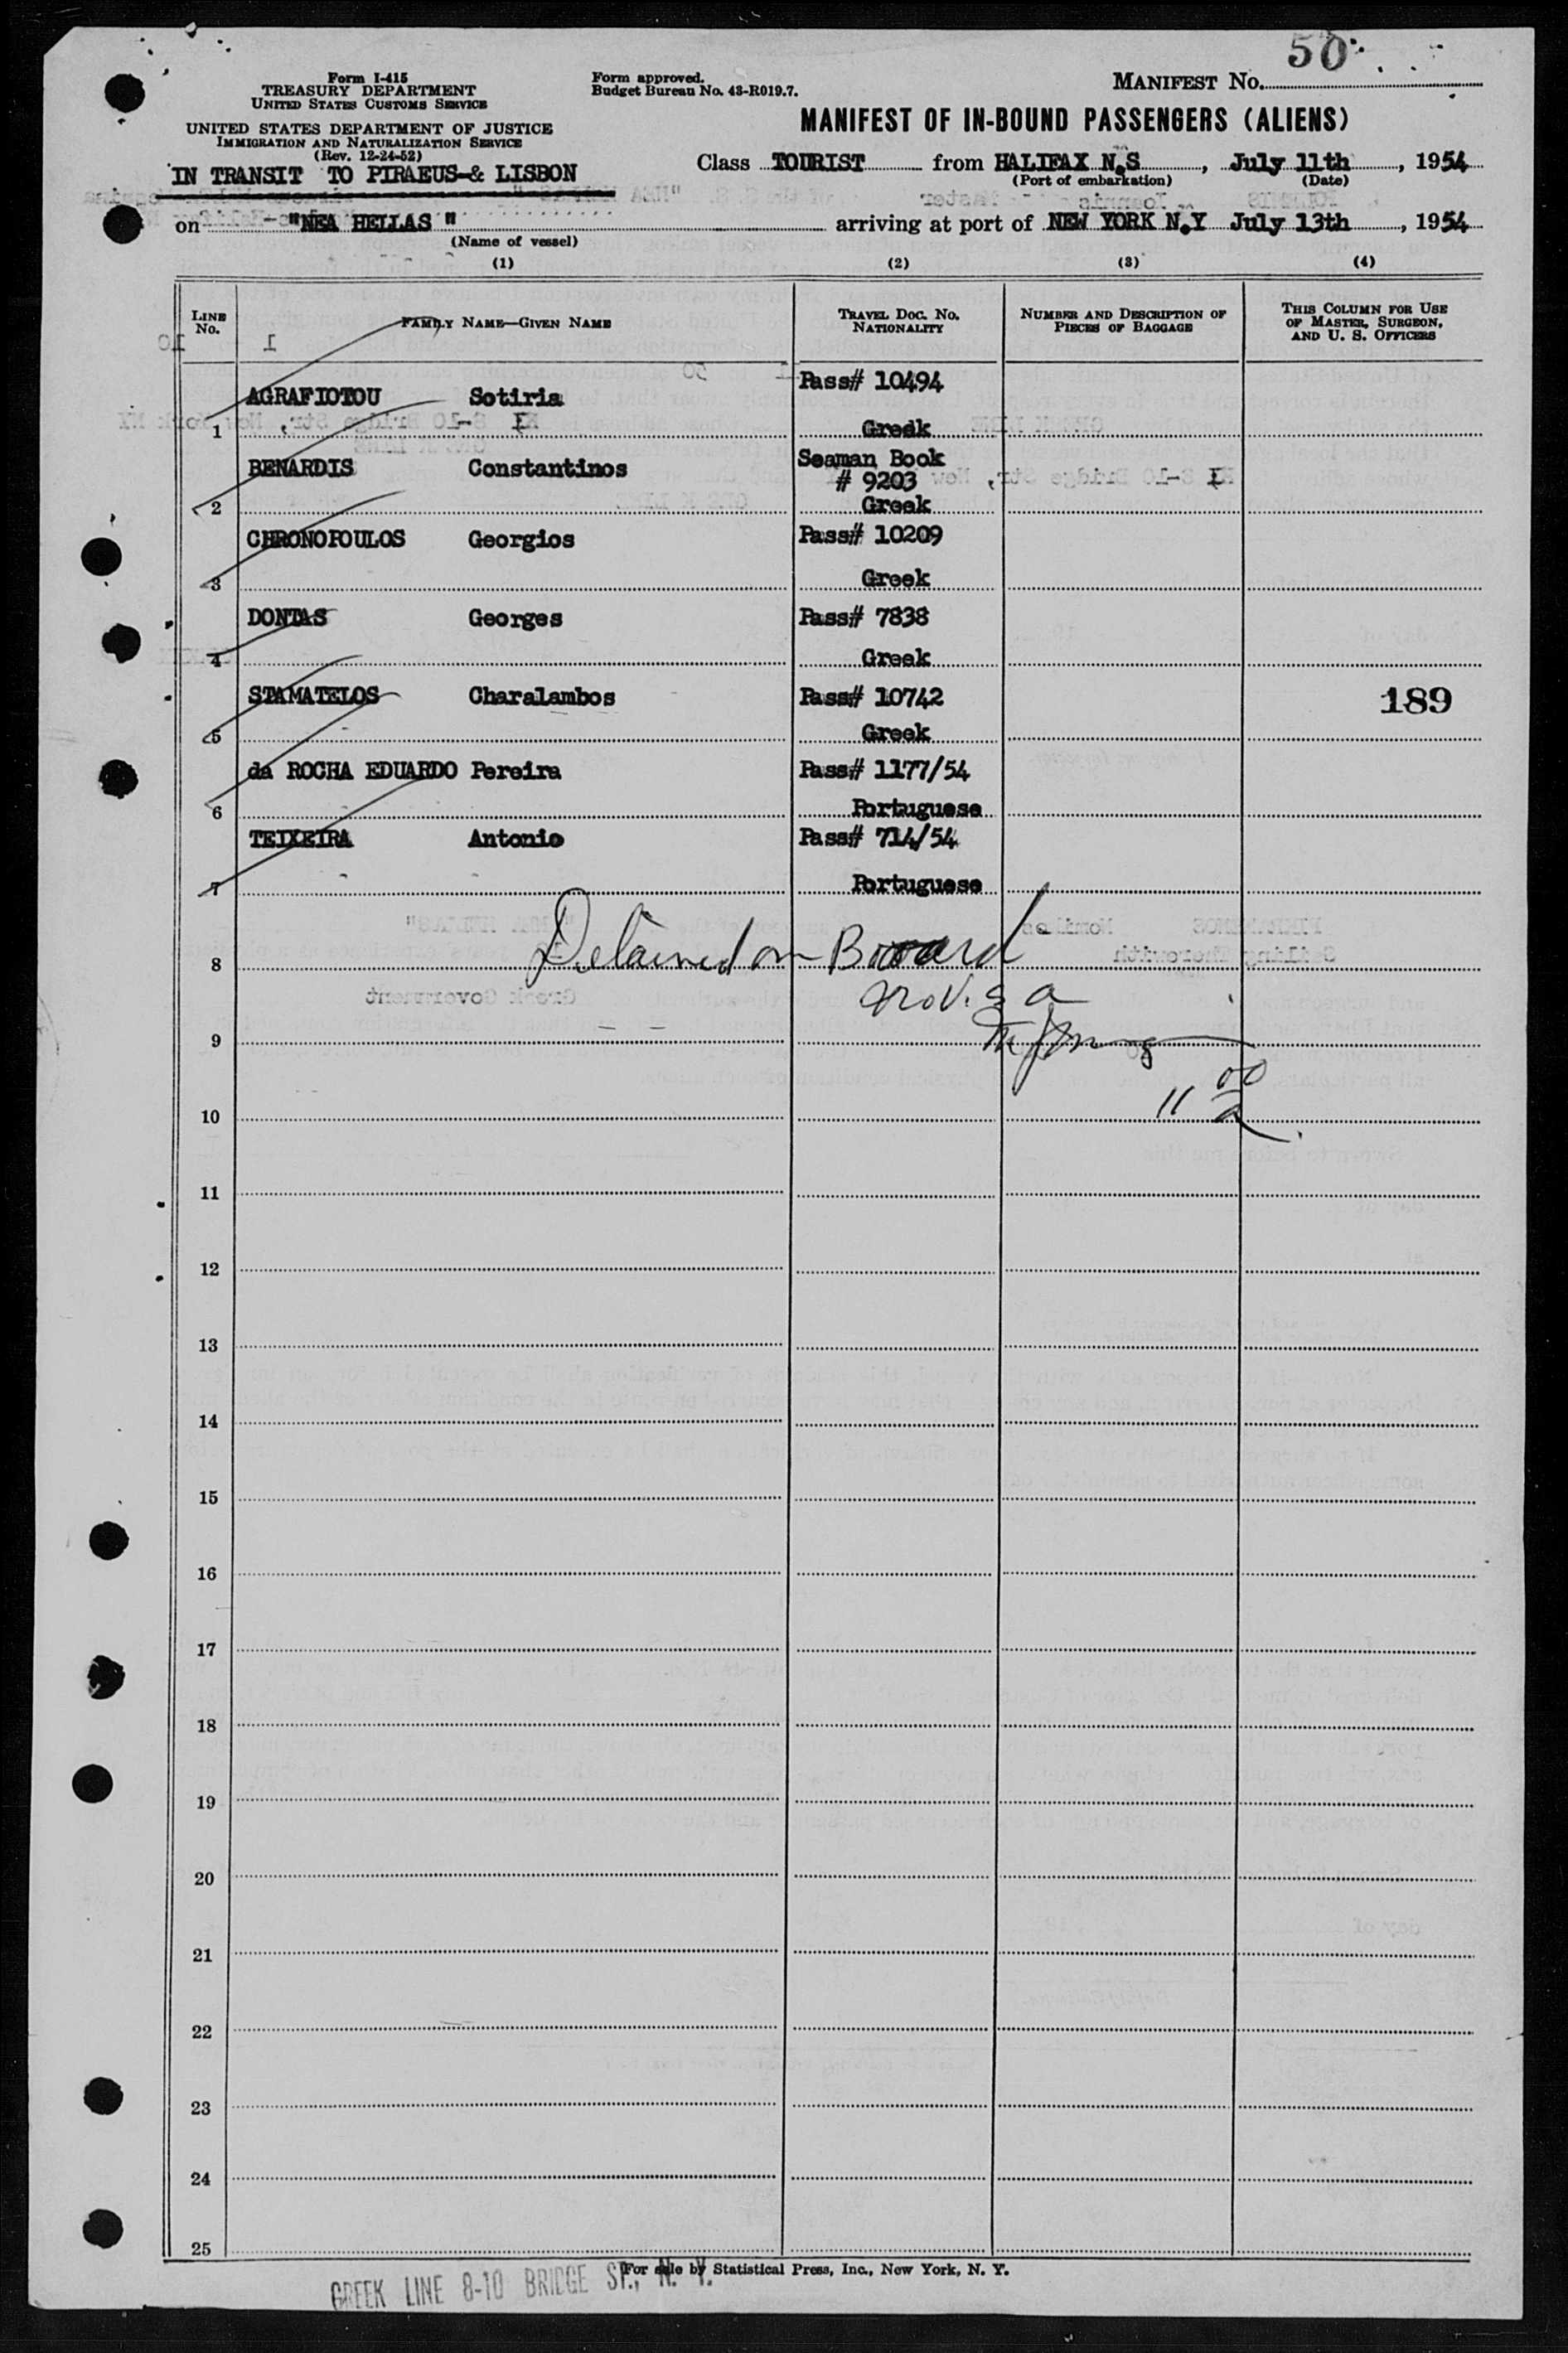 50
Form I-415
TREASURY DEPARTMENT
UNITED STATES CUSTOMS SERVICE
Form approved.
Budget Bureau No. 43-R019.7.
MANIFEST NO.
UNITED STATES DEPARTMENT OF JUSTICE
IMMIGRATION AND NATURALIZATION SERVICE
(Rev. 12-24-52)
MANIFEST OF IN-BOUND PASSENGERS (ALIENS)
IN TRANSIT TO PIRAEUS & LISBON
Class TOURIST from HALIFAX N.S, July 11th, 1954
(Port of embarkation) (Date)
on "NEA HELLAS" arriving at port of NEW YORK N.Y July 13th, 1954
(Name of vessel)
(1) (2) (3) (4)
LINE No. FAMILY NAME—GIVEN NAME TRAVEL DOC. NO. NATIONALITY NUMBER AND DESCRIPTION OF PIECES OF BAGGAGE THIS COLUMN FOR USE OF MASTER, SURGEON, AND U. S. OFFICERS
AGRAFIOTOU Sotiria Pass# 10494
1 Greek
BENARDIS Constantinos Seaman Book
# 9203
2 Greek
CHRONOPOULOS Georgios Pass# 10209
3 Greek
DONTAS Georges Pass# 7838
4 Greek
STAMATELOS Charalambos Pass# 10742 189
5 Greek
da ROCHA EDUARDO Pereira Pass# 1177/54
6 Portuguese
TEIXEIRA Antonio Pass# 714/54
7 Portuguese
8 Detained on Board
9
10 11 00
11
12
13
14
15
16
17
18
19
20
21
22
23
24
25
For sale by Statistical Press, Inc., New York, N. Y.
GREEK LINE 8-10 BRIDGE ST., N. Y.